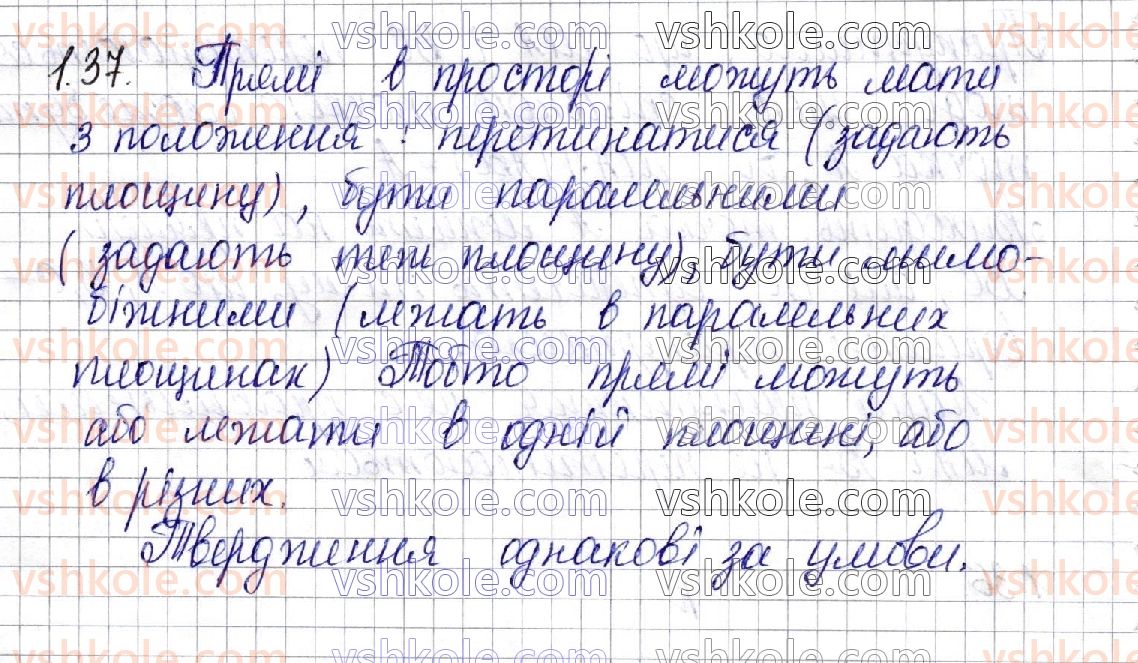 1.37. Прямі в просторі можуть мати
3 положення : перетинатися (задають
площину), бути паралельними
(задають теж площину), бути мимо-
біжними (лежать в паралельних
площинах) Тобто прямі можуть
або лежати в одній площині, або
в різних.
Твердження однакові за умови.